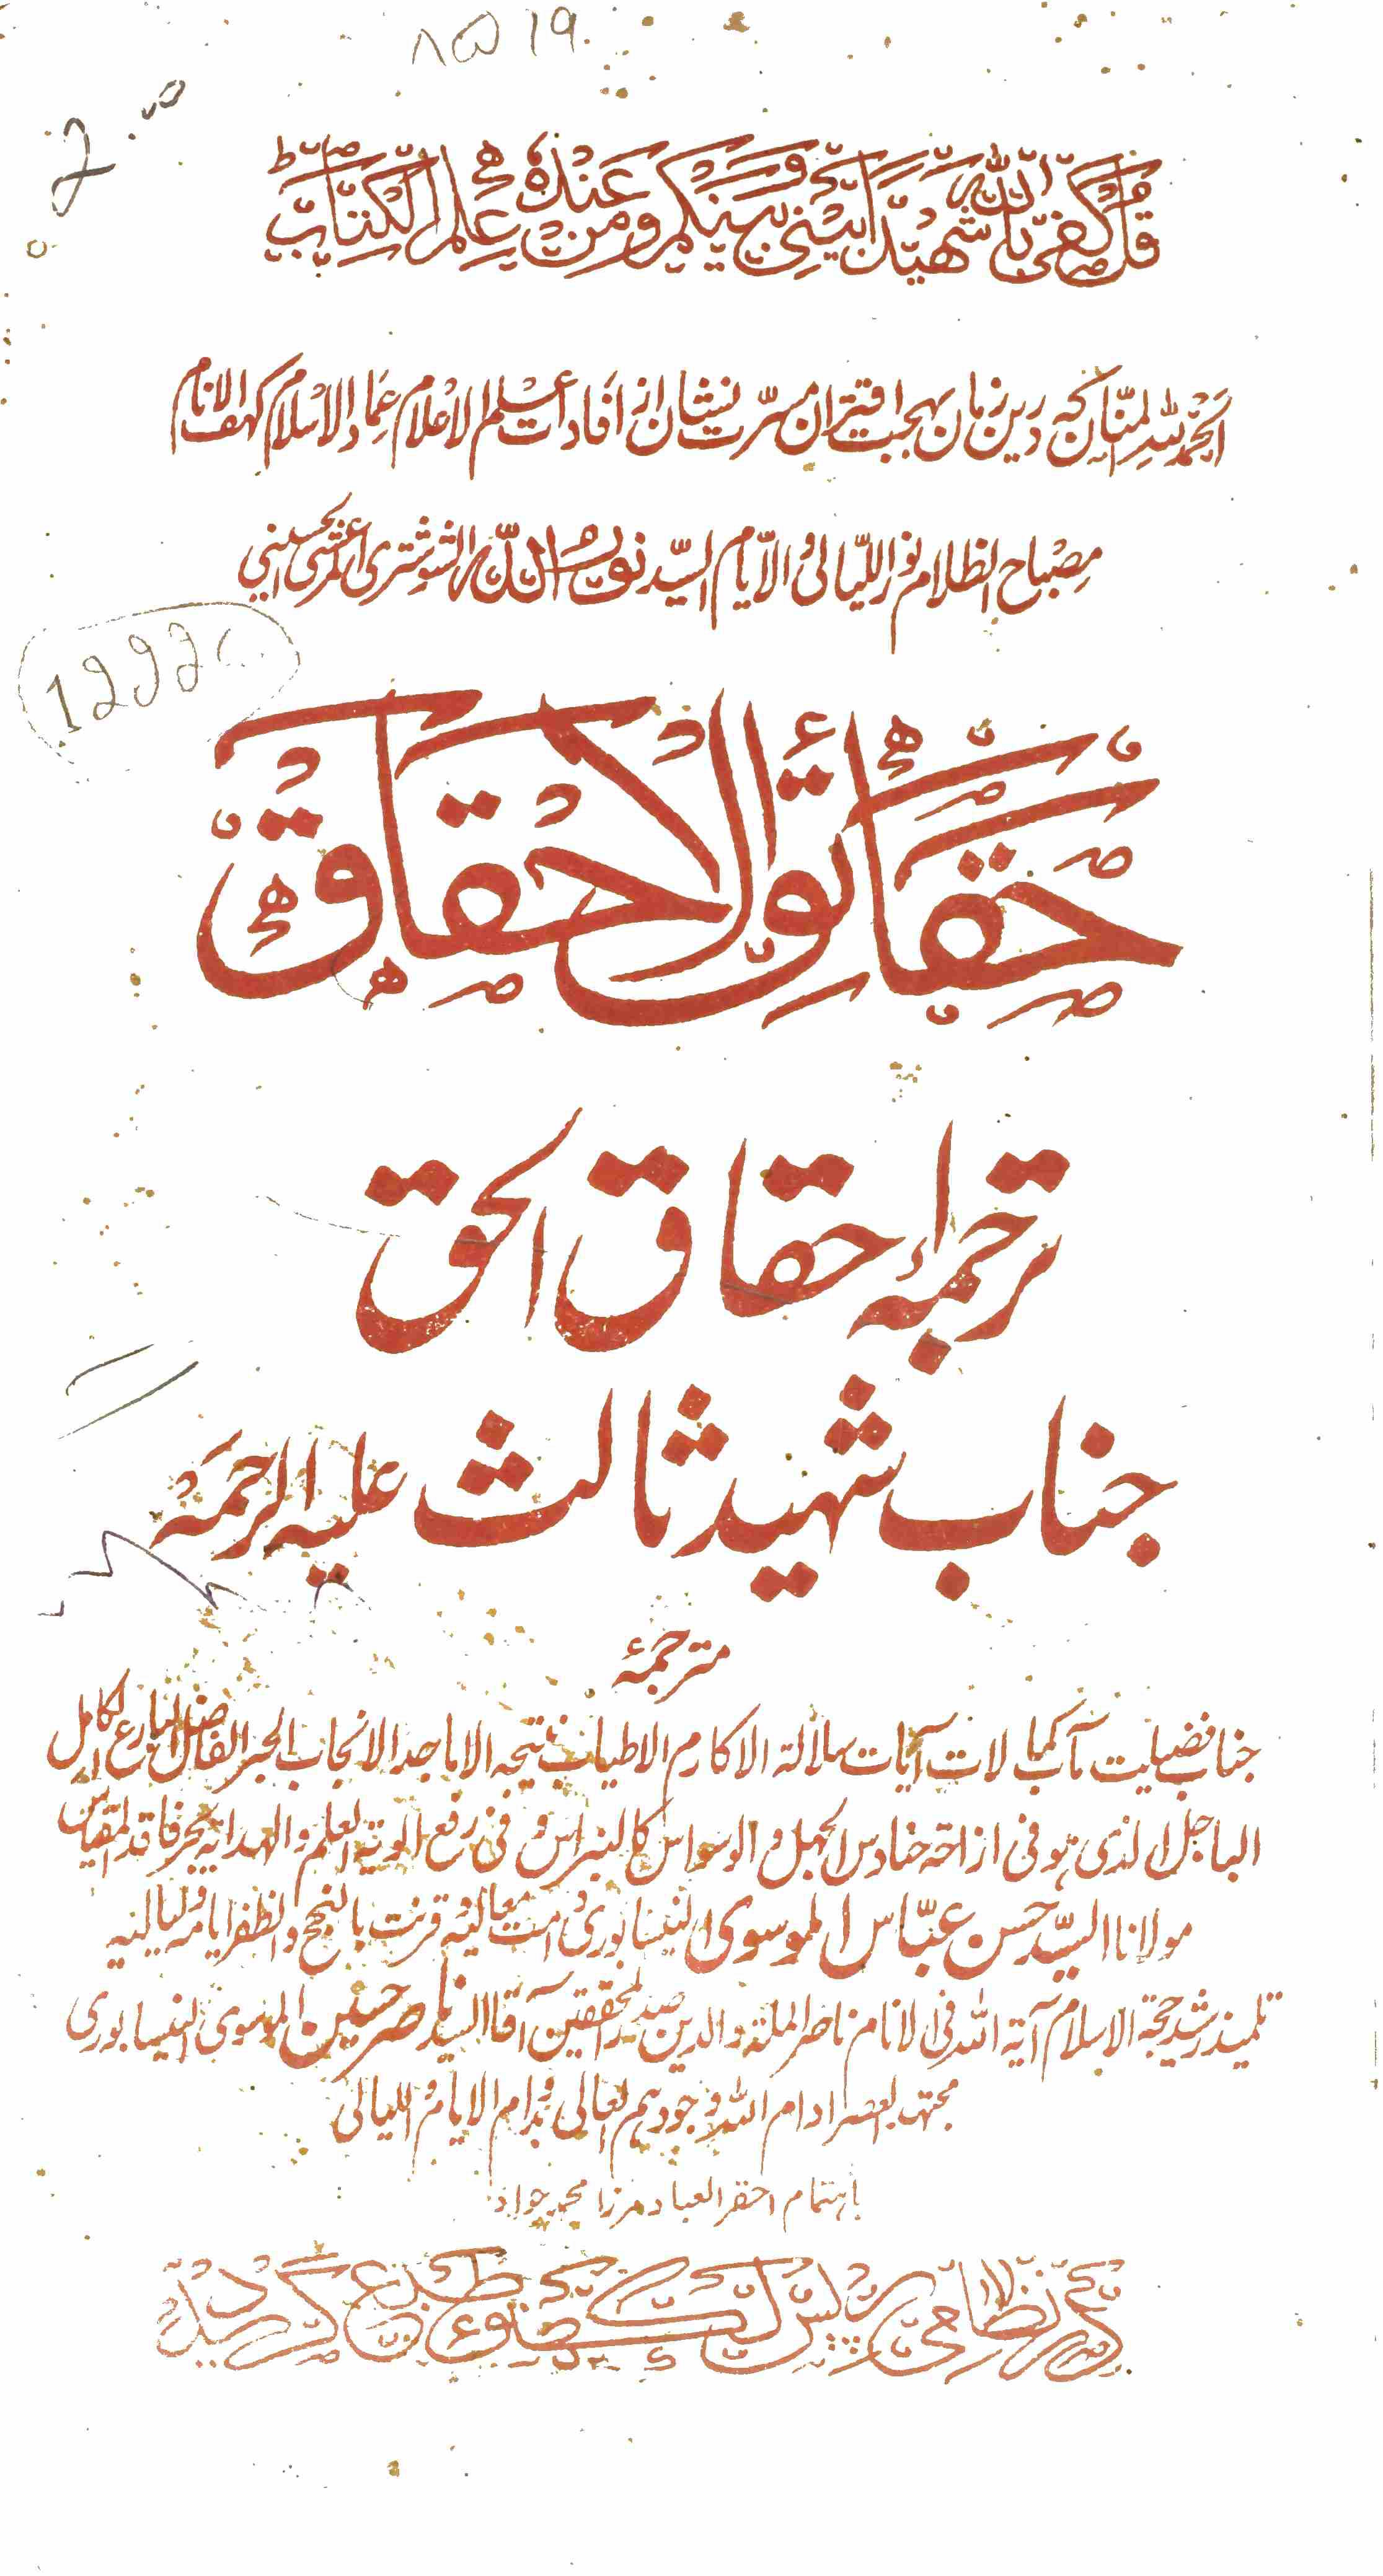 ۸۵ ۱۹
2.00
قُلْ كَفىٰ بِاللّٰهِ شَهِيْدًا بَيْنِيْ وَبَيْنَكُمْ وَمَنْ عِنْدَهٗ عِلْمُ الْكِتَابِ
الحمد لله المنان کہ درین زمان بہجت اقتران مسرت نشان از افادات علم الاعلام عماد الاسلام کہف الانام
مصباح الظلام نور اللیالی والایام السید نور اللہ الشوشتری المرعشی الحسینی
حقائق الاحقاق
ترجمہ احقاق الحق
جناب شہید ثالث علیہ الرحمہ
مترجمۂ
جناب فضیلت مآب کمالات آیات سلالۃ الاکارم الاطیاب نتیجۃ الاماجد الانجاب الحبر الفاضل البارع الکامل
الباجل الذی ہو فی ازاحۃ حنادس الجہل والوسواس کالنبراس و فی رفع الویۃ العلم والہدایہ
مولانا السید حسن عباس الموسوی النیسابوری دامت معالیہ قرنت بالنجح والظفر ایامہ ولیالیہ
تلمیذ رشید حجۃ الاسلام آیۃ اللہ فی الانام ناصر الملۃ والدین صدر المحققین آقا السید ناصر حسین الموسوی النیسابوری
مجتہد العصر ادام اللہ وجودہم العالی بدوام الایام واللیالی
باہتمام احقر العباد مرزا محمد جواد
در نظامی پریس لکھنؤ طبع گردید